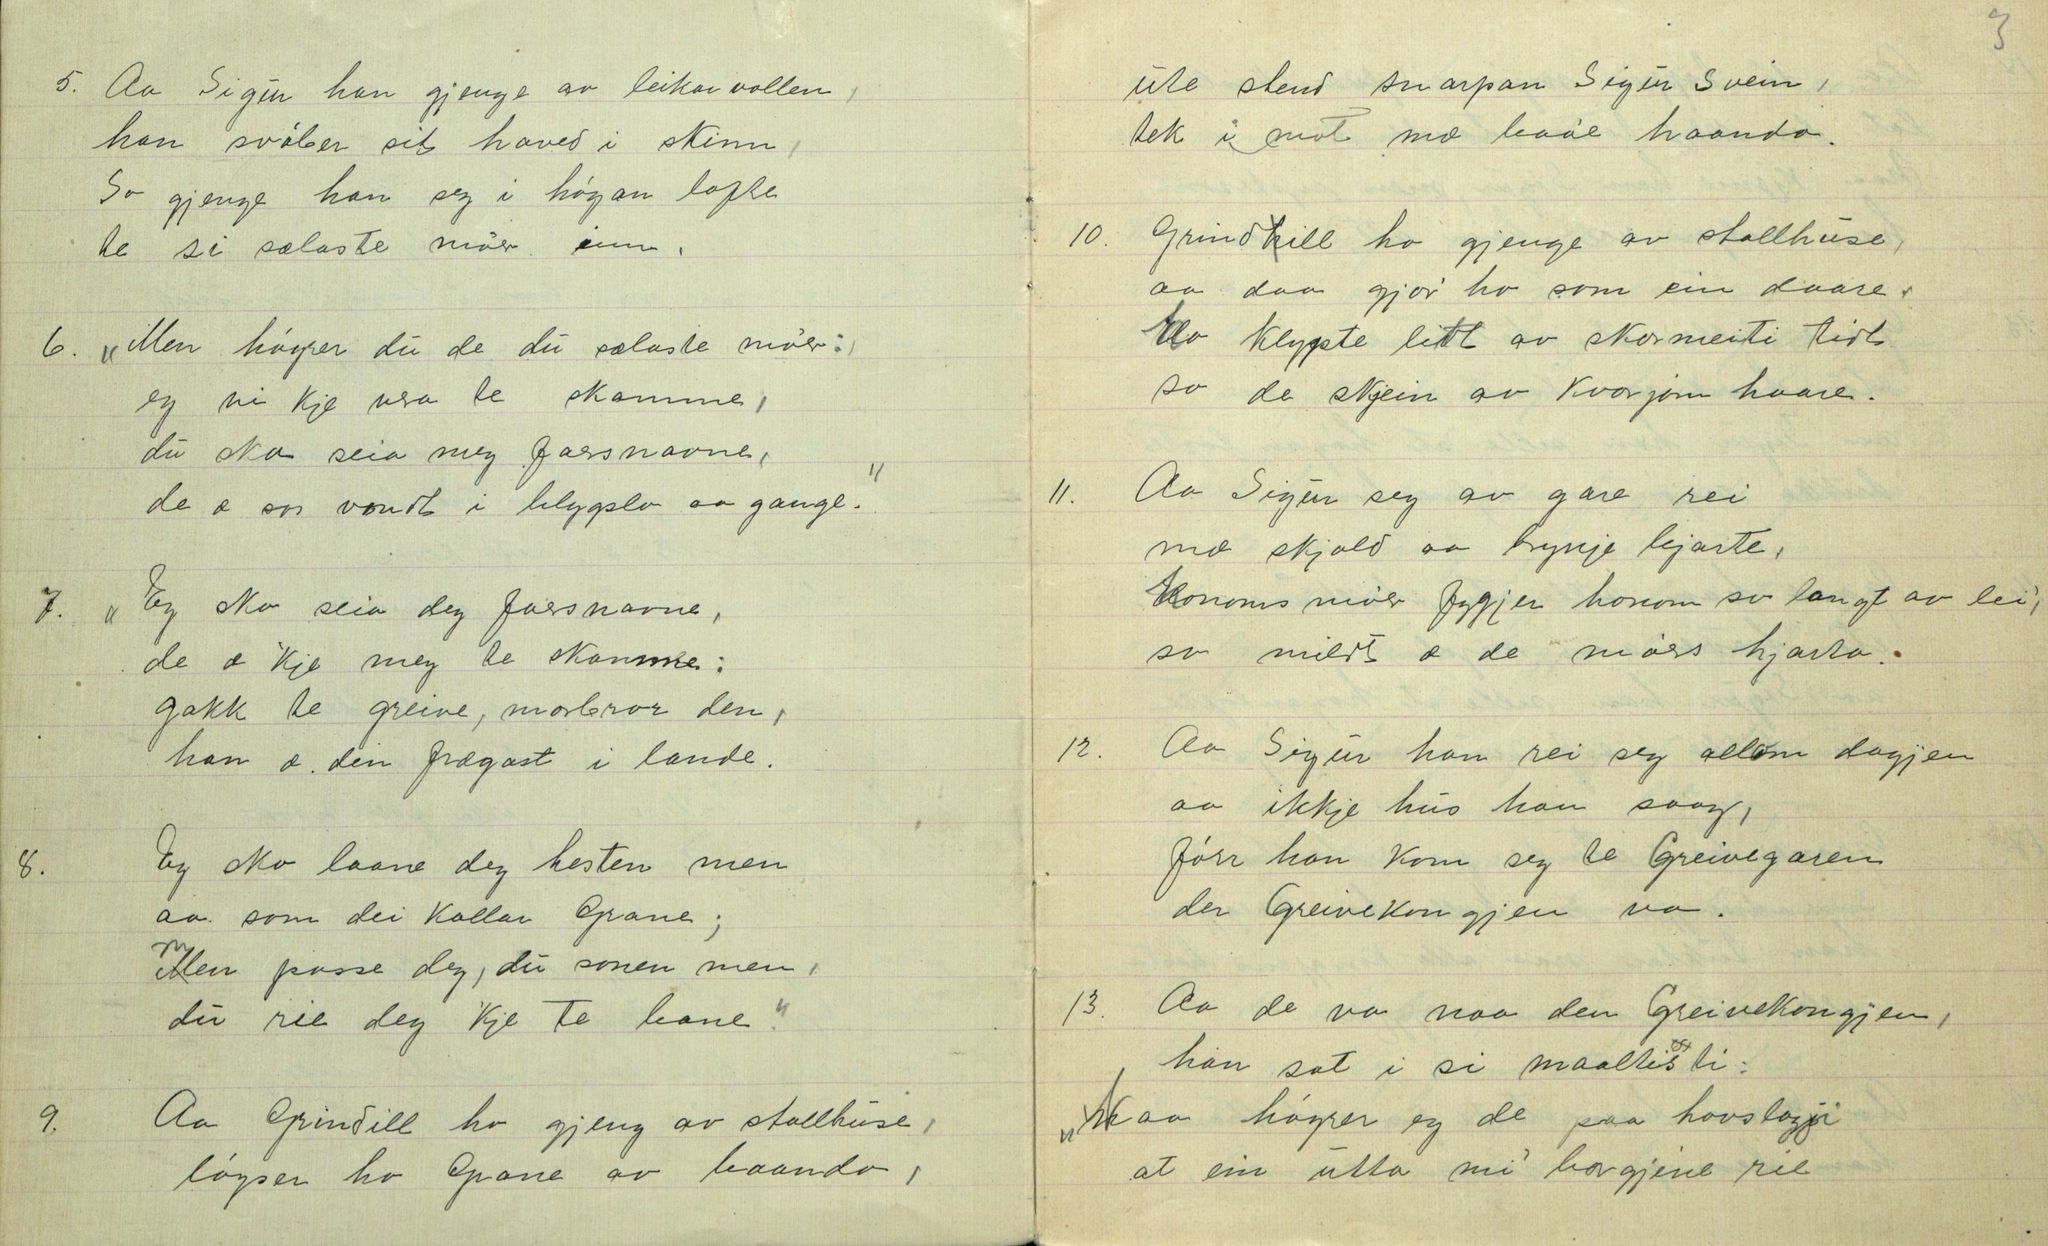 5. Aa Sigûr han gjenge av leikarvollen,
han svóber sit haved i skinn,
So gjenge han seg i hógan lofte
te si sælaste móer inn.
6. "Men hóyrer dû de dû sælaste móer:,
eg vi kje vera te skamme,
dû ska seia meg faersnavne,
de æ so vondt i blygslo aa gange."
7. "Eg ska seia deg faersnavne,
de æ kje meg te skamme:
gakk te greive, morbror den,
han æ den frægast i lande.
8. Eg ska laane deg hesten men
aa som dei kallar Grane;
Men passe deg, dû sonen men,
dû rie deg kje te bane"
9. Aa Grindill ho gjeng av stallhûse,
lóyser ho Grane av baando,
3
ûte stend snarpan Sigûr Svein,
tek i mot mæ baae haando.
10. Grindill ho gjenge av stallhûse,
aa daa gjor' ho som ein daare.
Ho klypte litt av skormeiti tidt
so de skjein av kvorjom haare.
11. Aa Sigûr seg av gare rei
mæ skjold aa brynje bjarte,
honoms móer fygjer honom so langt av lei',
so mildt æ de móers hjarta.
12. Aa Sigûr han rei seg allom dagjen
aa ikkje hûs han saag,
fórr han kom seg te Greivegaren
der Greivekongjen va.
13. Aa de va naa den Greivekongjen,
han sat i si maaltisti:
"Kaa hóyrer eg de paa hovslagji
at ein ûtta mi' borgjene rie